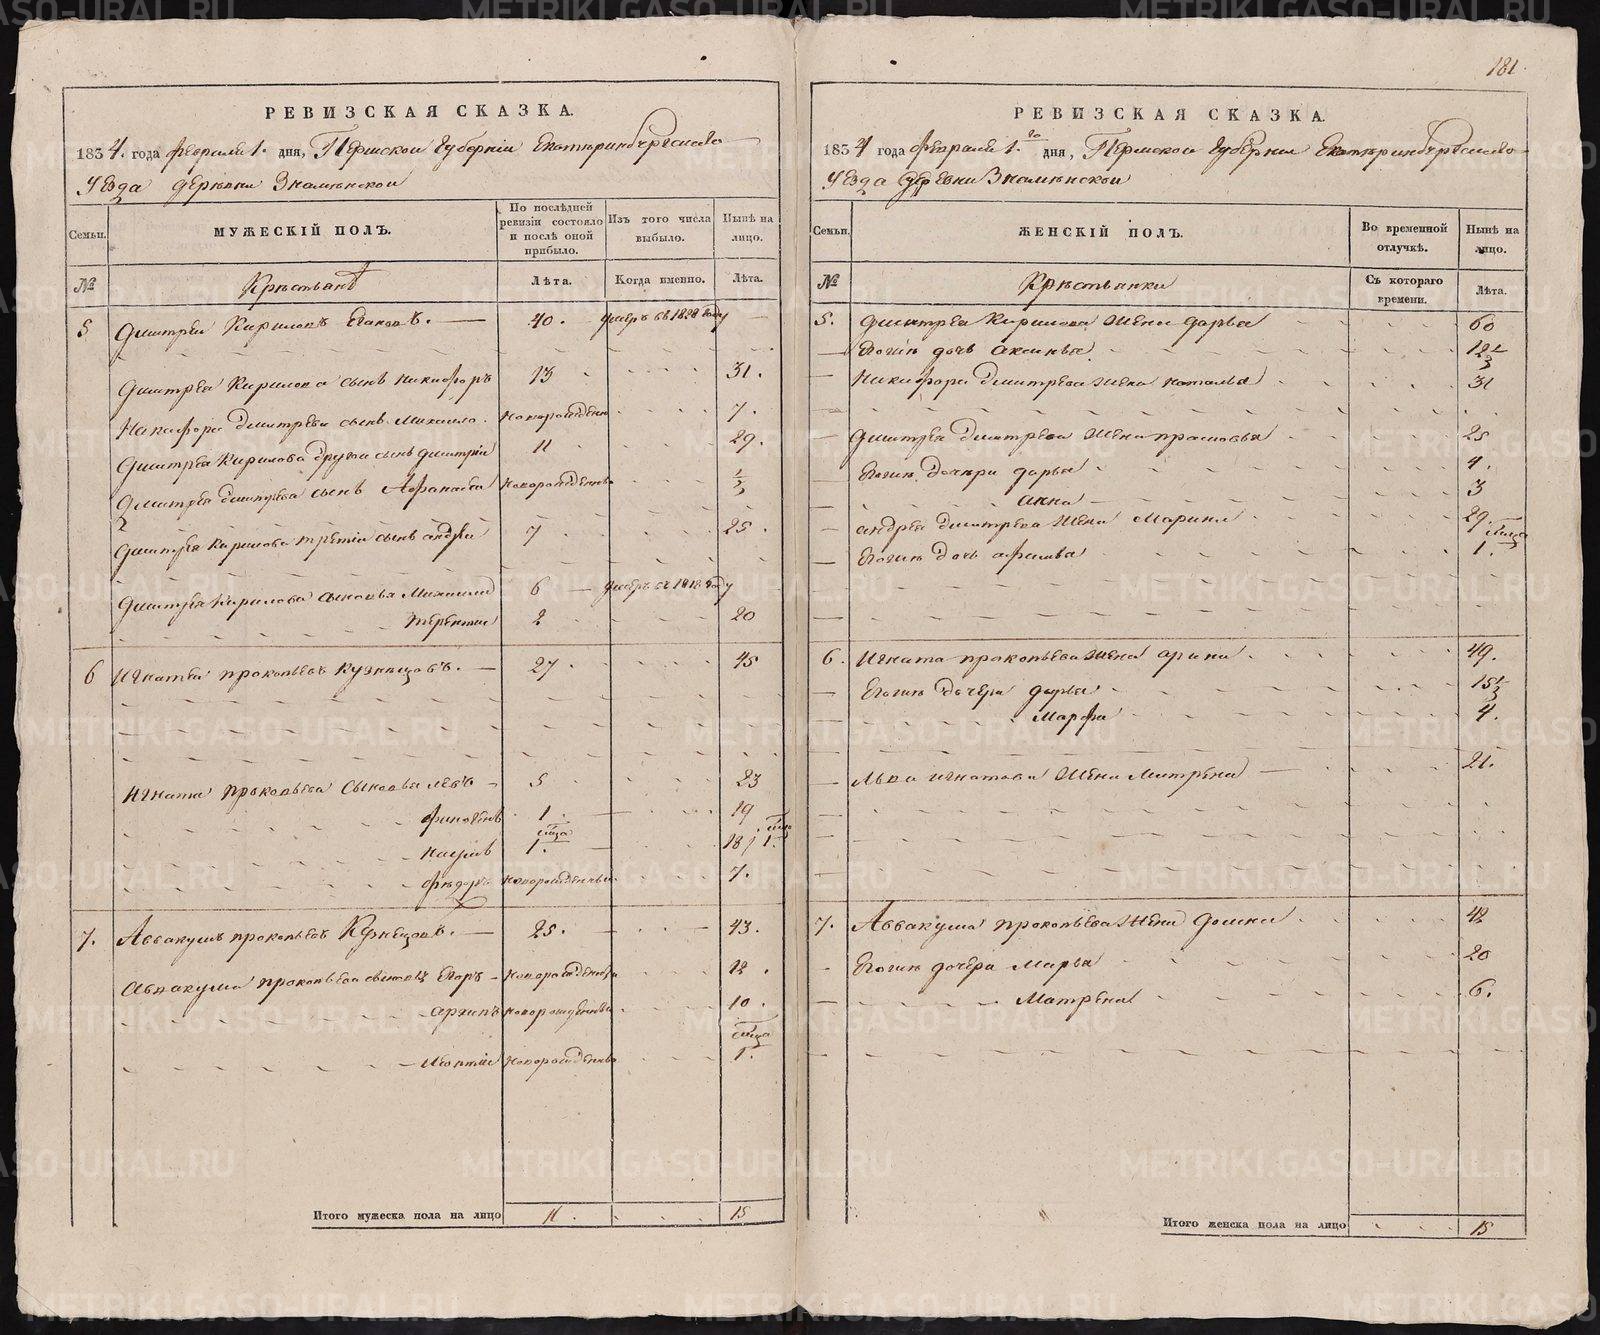 181.
РЕВИЗСКАЯ СКАЗКА.
1834. года февраля 1. дня, Пермской Губернiи Екатеринбургскаго
Уезда деревни Знаменской
Семьи. МУЖЕСКIЙ ПОЛЪ. По послѣдней ревизiи состояло и послѣ оной прибыло. Изъ того числа выбыло. Нынѣ на лицо.
№ Крестьянъ Лѣта. Когда именно. Лѣта.
5 Дмитреи Кириловъ 40. умеръ въ 1828 году
Дмитрея Кирилова сынъ Никифоръ 13 31.
Никифора Дмитрева сынъ Михаило. новорожденъ 7.
Дмитрея Кирилова другои сынъ Дмитрiи 11 29.
Дмитрея Дмитрева сынъ Афанасеи новорожденны ½
Дмитрея Кирилова третiи сынъ Андреи 7 25.
Дмитрея Кирилова сыновья Михаило 6 умеръ въ 1818 году
терентеи 2 20
6 Игнатеи прокопьевъ Кузнецовъ. 27. 45
Игната прокопьева сыновья левъ 5 23
финогенъ 1. 19
наумъ 1. 18/1.
федоръ новорожденны 7.
7. Аввакумъ прокопьевъ Кузнецовъ. 25. 43.
Авакума прокопьева сыновья Егоръ новорожденны 12.
архипъ новорожденны 10.
новорожденны 1.
Итого мужеска пола на лицо 11. 15
РЕВИЗСКАЯ СКАЗКА.
1834 года февраля 1.го дня, Пермской Губернiи Екатеринбургскаго
Уезда деревни Знаменской
Семьи. ЖЕНСКIЙ ПОЛЪ. Во временной отлучкѣ. Нынѣ на лицо.
№ Крестьянки Съ котораго времени. Лѣта.
5. Дмитрея Кирилова жена дарья 60
Ево дочь Аксинья 12½
Никифора Дмитрева жена наталья 31
Дмитрея Дмитрева жена прасковья 25
Ево дочери дарья 4.
анна 3
андрея Дмитрева жена Марина 29.
Ево дочь 1.
6. Игната прокопьева жена арина 49.
Ево дочери дарья 15½
Марфа 4.
Льва игнатова жена Матрена 21.
7. Аввакума прокопьева жена домна 42
Ево дочери Марья 20
Матрена 6.
Итого женска пола на лицо 15
METRIKI.GASO-URAL.RU